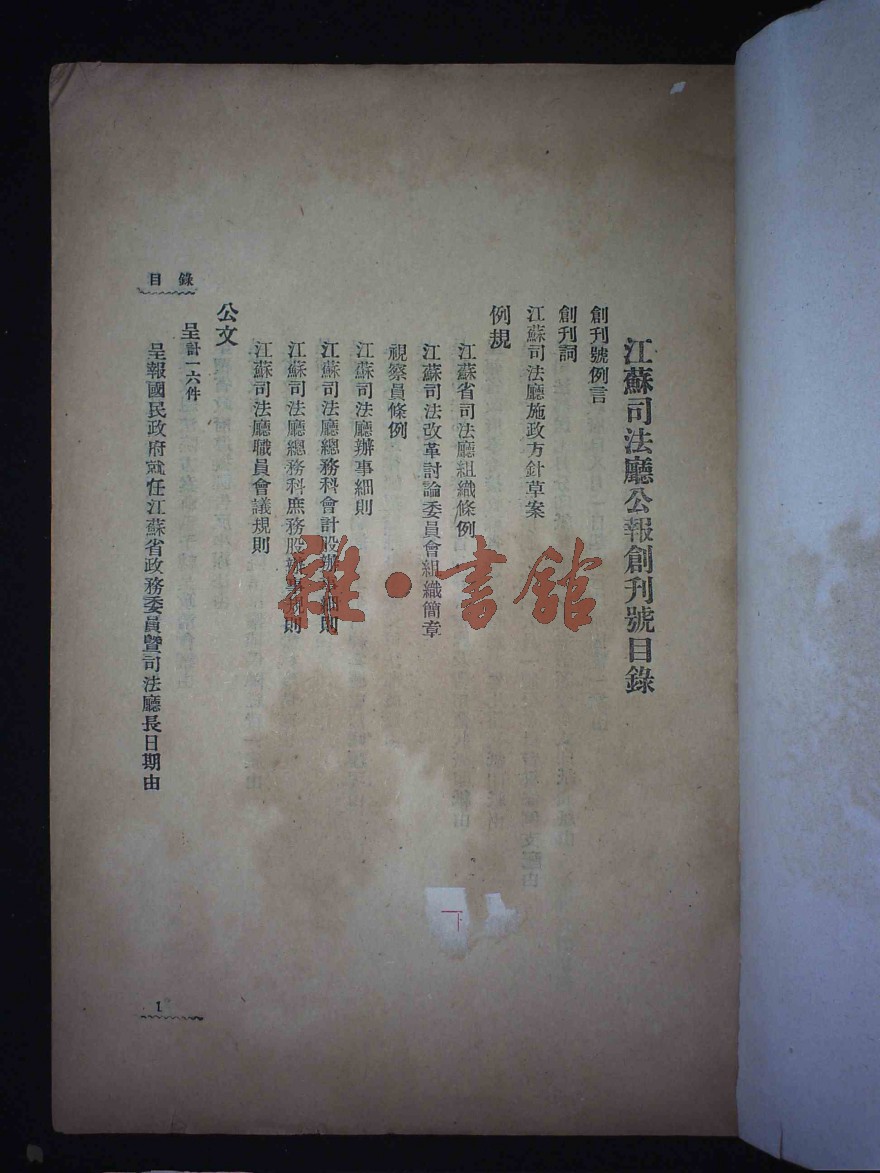 江蘇司法廳公報創刊號目錄
創刊號例言
創刊詞
江蘇司法廳施政方針草案
例規
江蘇省司法廳組織條例
江蘇司法改革討論委員會組織簡章
視察員條例
江蘇司法廳辦事細則
江蘇司法廳總務科會計股辦事細則
江蘇司法廳總務科庶務股辦事規則
江蘇司法廳職員會議規則
公文
呈計一六件
呈報國民政府就任江蘇省政務委員暨司法廳長日期由
目錄
1
雜·書館
下